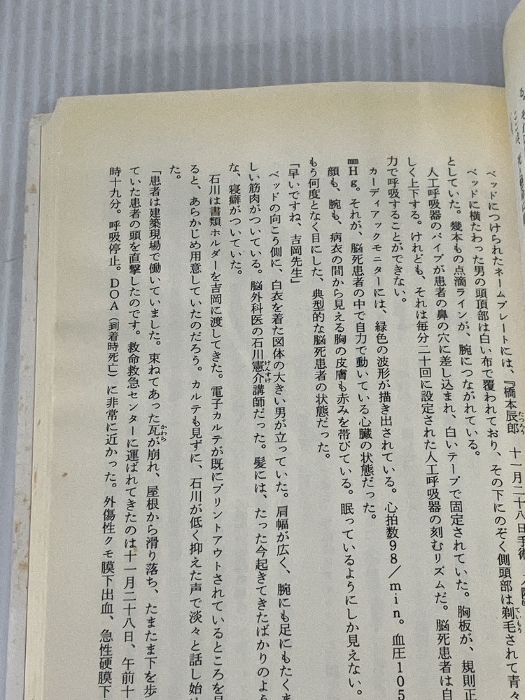 ベッドにつけられたネームプレートには、『橋本辰郎　十一月二十八日手術
ベッドに横たわった男の頭頂部は白い布で覆われており、その下にのぞく側頭部は剃毛されて青々
としていた。幾本もの点滴ラインが、腕につながれている。
人工呼吸器のパイプが患者の鼻の穴に差し込まれ、白いテープで固定されていた。胸板が、規則正
しく上下する。けれども、それは毎分二十回に設定された人工呼吸器の刻むリズムだ。脳死患者は自
力で呼吸することができない。
カーディアックモニターには、緑色の波形が描き出されている。心拍数98／min。血圧105
mmHg。それが、脳死患者の中で自力で動いている心臓の状態だった。
顔も、腕も、病衣の間から見える胸の皮膚も赤みを帯びている。眠っているようにしか見えない。
もう何度となく目にした、典型的な脳死患者の状態だった。
「早いですね、吉岡先生」
ベッドの向こう側に、白衣を着た図体の大きい男が立っていた。肩幅が広く、腕にも足にもたくま
しい筋肉がついている。脳外科医の石川憲介講師だった。髪には、たった今起きてきたばかりのよう
な、寝癖がついていた。
石川は書類ホルダーを吉岡に渡してきた。電子カルテが既にプリントアウトされているところを見
ると、あらかじめ用意していたのだろう。カルテも見ずに、石川が低く抑えた声で淡々と話し始め
た。
「患者は建築現場で働いていました。束ねてあった瓦が崩れ、屋根から滑り落ち、たまたま下を歩
ていた患者の頭を直撃したのです。救命救急センターに運ばれてきたのは十一月二十八日、午前十
時十九分。呼吸停止。DOA（到着時死亡）に非常に近かった。外傷性クモ膜下出血、急性硬膜下